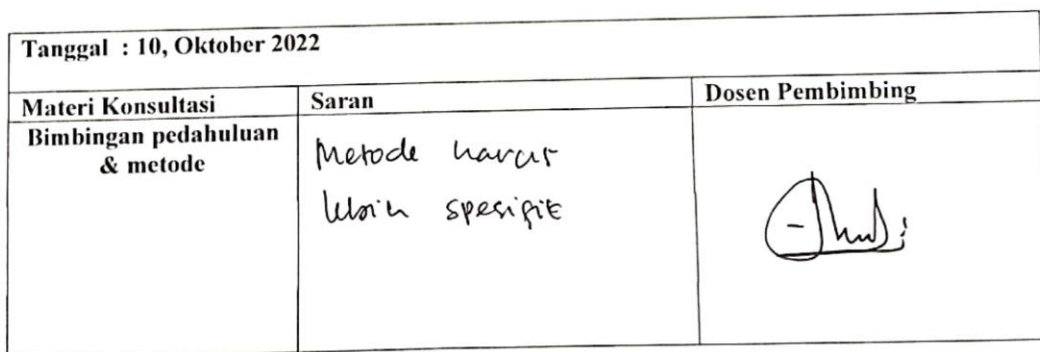 Tanggal : 10, Oktober 2022
Materi Konsultasi
Saran
Dosen Pembimbing
Bimbingan pedahuluan
& metode
Metode harus
lebih spesifik